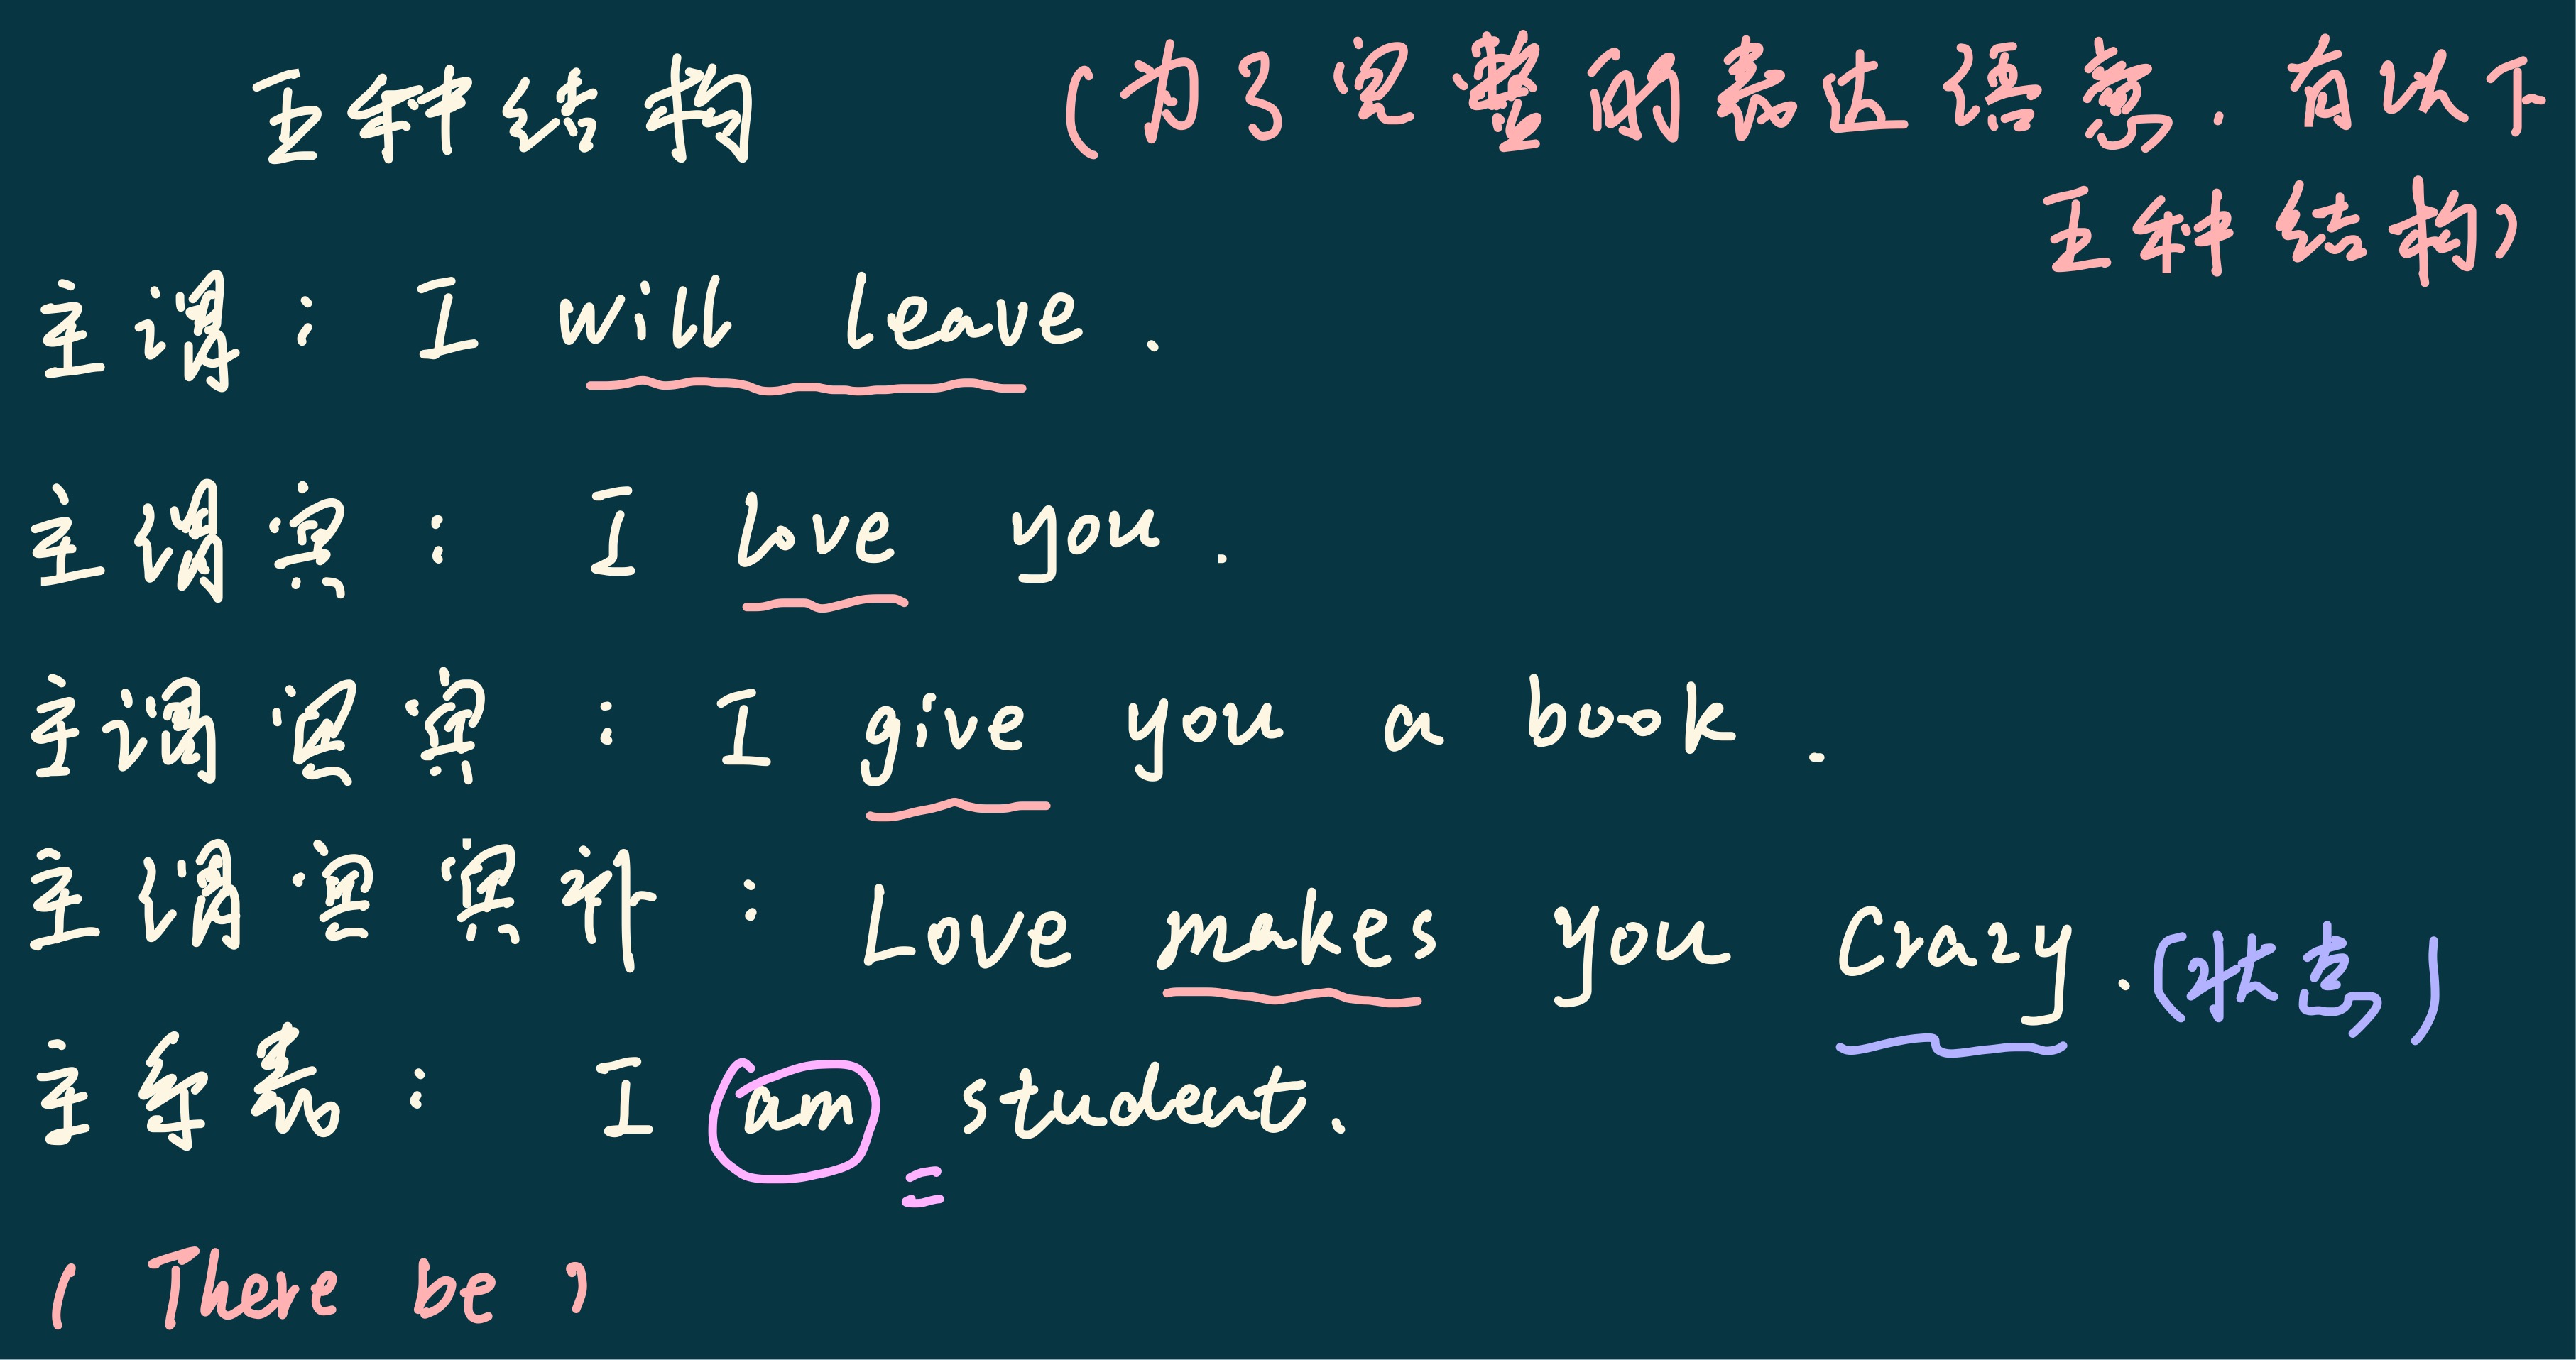 五种结构 (为了完整的表达语意.有以下
五种结构)
主谓: I will leave.
主谓宾: I love you.
主谓宾宾: I give you a book.
主谓宾宾补: Love makes you crazy.(状态)
主系表: I am student.
=
(There be)